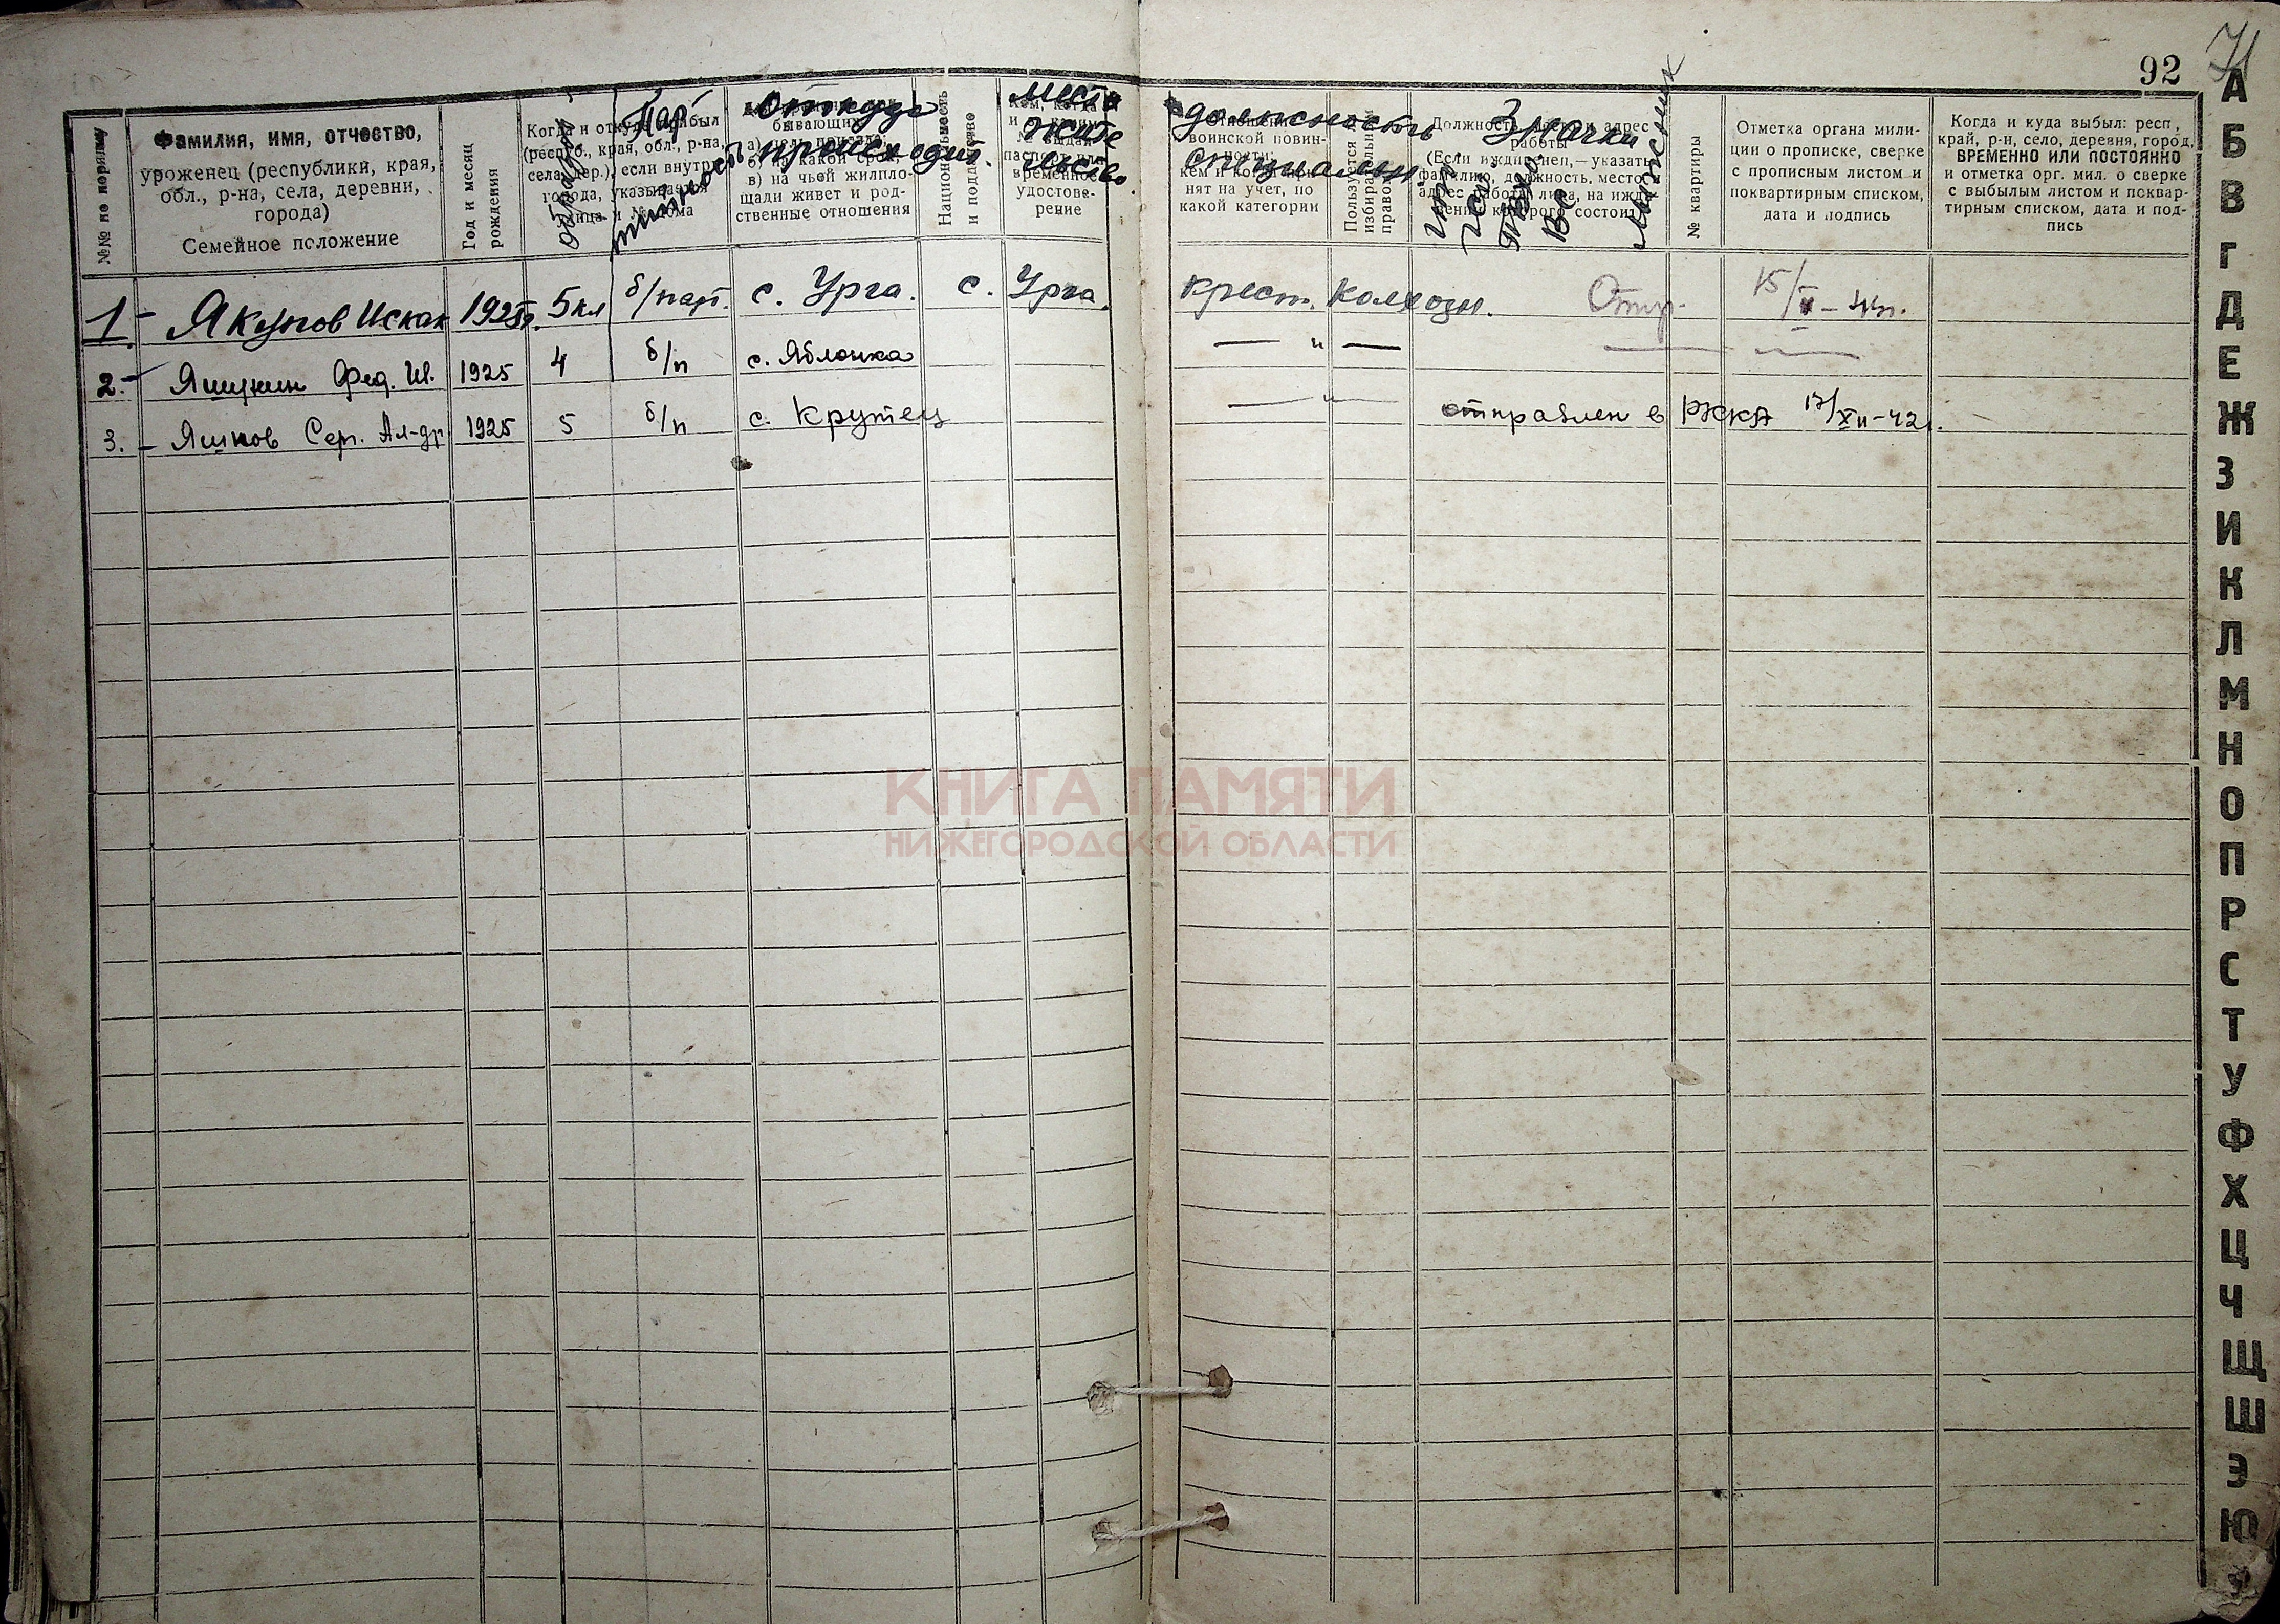 92
71
№№ по порядку
Фамилия, имя, отчество,
уроженец (республики, края,
обл., р-на, села, деревни,
города)
Семейное положение
Год и месяц
рождения
Когда и откуда прибыл
(респуб., края, обл., р-на,
села, дер.), если внутри
города, указывается
улица и № дома
Пар
тийность
откуда
происходит.
в) на чьей жилпло-
щади живет и род-
ственные отношения
Национальность
и подданство
место
жите
льство.
временное
удостове-
рение
должность
специальн.
воинской повин-
нят на учет, по
какой категории
Пользуется ли
избирательным
правом
Значки
Должность
адрес
работы
(Если иждивенец, — указать
фамилию, должность, место
состоит)
№ квартиры
Отметка органа мили-
ции о прописке, сверке
с прописным листом и
поквартирным списком,
дата и подпись
Когда и куда выбыл: респ,
край, р-н, село, деревня, город,
ВРЕМЕННО ИЛИ ПОСТОЯННО
и отметка орг. мил. о сверке
с выбылым листом и поквар-
тирным списком, дата и под-
пись
1 - Якупов Искак 1925г. 5кл б/парт. с. Урга. с. Урга. крест. колхозн. Отпр. 15/
2. - Яшукин Фед. Ив. 1925 4 б/п с. Яблонка — " —
3. - Яшков Сер. Ал-др 1925 5 б/п с. Крутец — " — отправлен в РККА 17/XII-42г.
КНИГА ПАМЯТИ
НИЖЕГОРОДСКОЙ ОБЛАСТИ
А
Б
В
Г
Д
Е
Ж
З
И
К
Л
М
Н
О
П
Р
С
Т
У
Ф
Х
Ц
Ч
Щ
Ш
Э
Ю